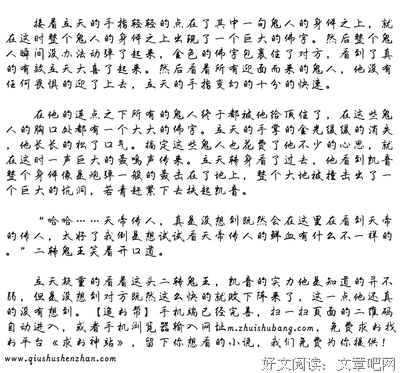 接着立天的手指轻轻的点在了其中一句鬼人的身体之上，就
在这时整个鬼人的身体之上出现了一个巨大的佛字。然后整个鬼
人瞬间没办法动弹了起来，金色的佛字包裹住了对方，看到了真
的有效立天大喜了起来。然后看着所有迎面而来的鬼人，他没有
任何畏惧的迎了上去，立天的手指变幻的十分的快速。
在他的连点之下所有的鬼人终于都被他给顶住了，在这些鬼
人的胸口处都有一个大大的佛字。立天的手掌的金光缓缓的消失
，他长长的松了口气。搞定这些鬼人也花费了他不少的心思，就
在这时一声巨大的轰鸣声传来。立天转身看了过去，他看到凯音
整个身体像是炮弹一般的轰击在了地上，整个大地被撞击出了一
个巨大的坑洞，若青赶紧下去扶起凯音。
“哈哈……天帝传人，真是没想到既然会在这里在看到天帝
的传人，太好了我倒是想试试看天帝传人的鲜血有什么不一样的
。”二转鬼王笑着开口道。
立天凝重的看着这头二转鬼王，凯音的实力他是知道的并不
弱，但是没想到对方既然这么快的就败下阵来了，这一点他还真
的没有想到。【追书帮】手机端已经完善，扫一扫页面的二维码
自动进入，或者手机浏览器输入网址m.zhuishubang.com，免费求书找
书平台《求书神站》，留下你想看的小说，我们免费为你提供！
www.qiushushenzhan.com
好文阅读：文章吧网